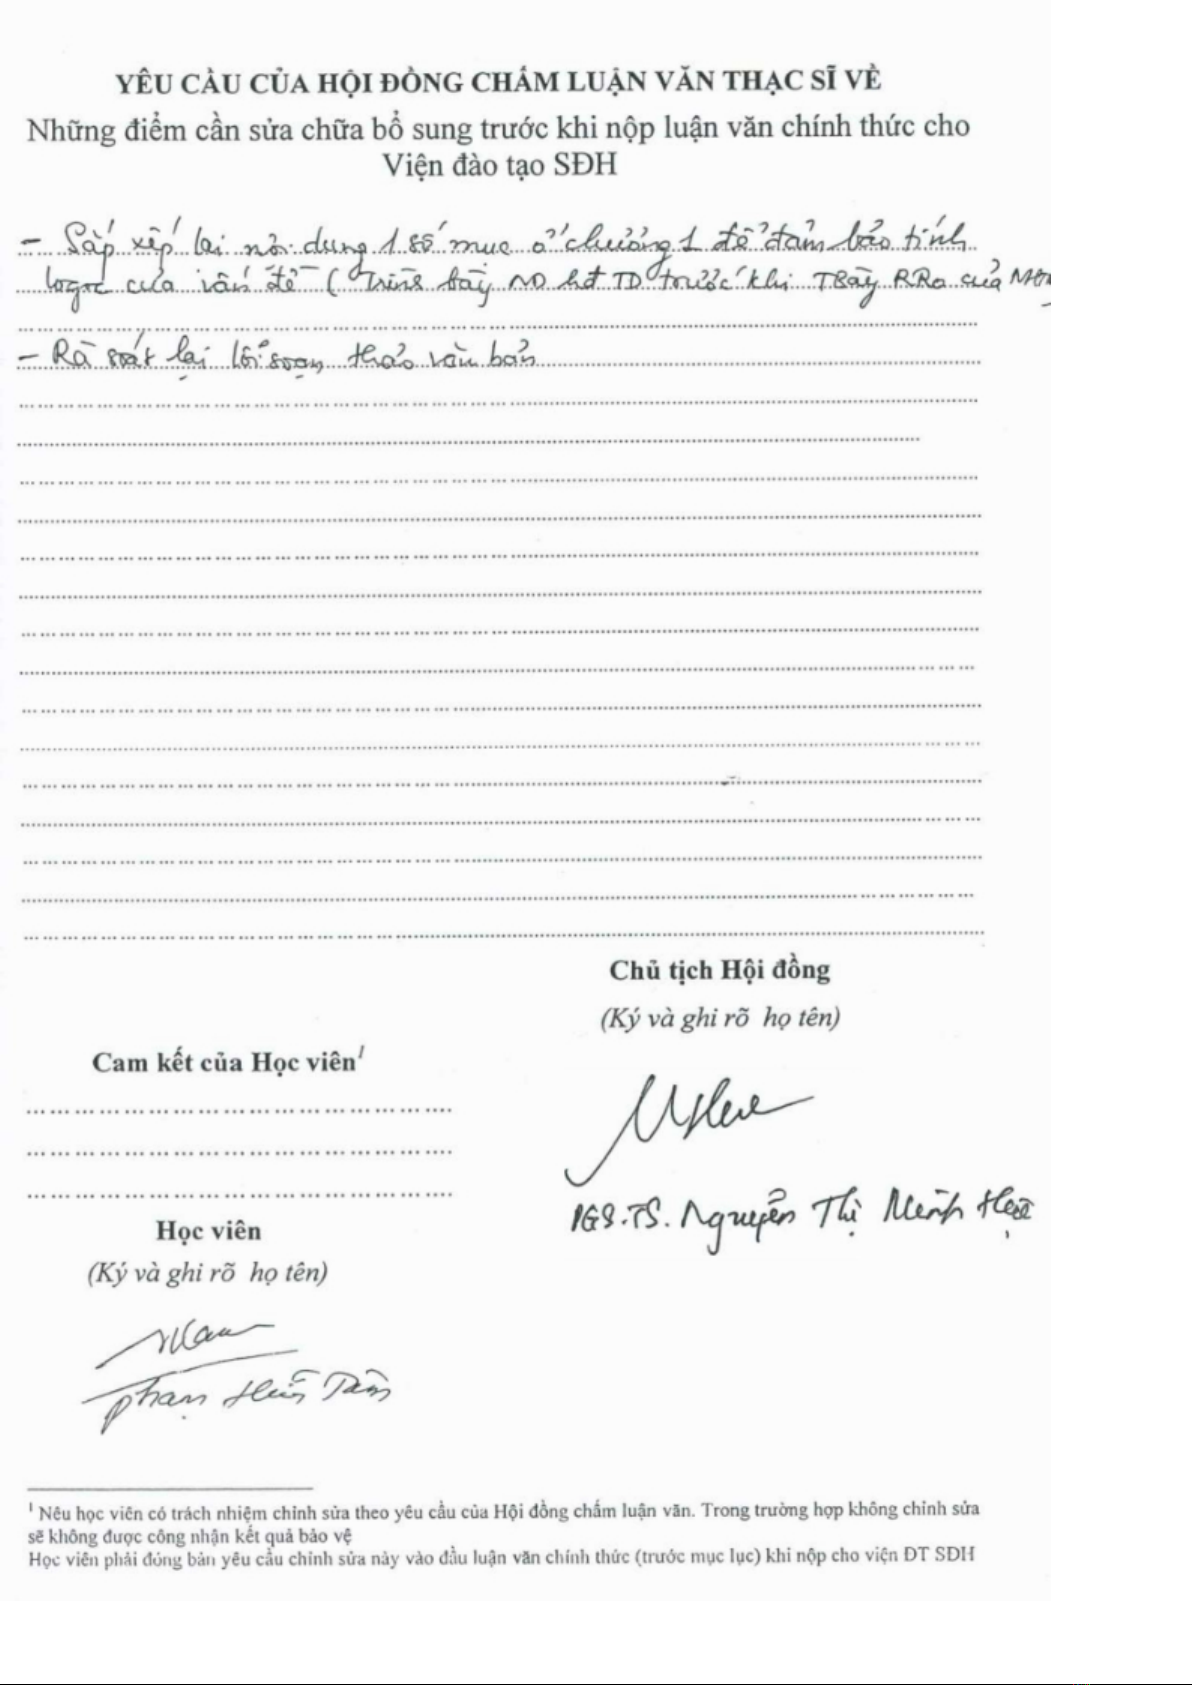 YÊU CẦU CỦA HỘI ĐỒNG CHẤM LUẬN VĂN THẠC SĨ VỀ
Những điểm cần sửa chữa bổ sung trước khi nộp luận văn chính thức cho
Viện đào tạo SĐH
- Sắp xếp lại nội dung 1 số mục ở chương 1 để đảm bảo tính
logic của vấn đề ( Trình bày ND hđ TD trước khi TBày RRo của
- Rà soát lại lỗi soạn thảo văn bản
Chủ tịch Hội đồng
(Ký và ghi rõ họ tên)
Cam kết của Học viên1
PGS.TS. Nguyễn Thị Minh Huệ
Học viên
(Ký và ghi rõ họ tên)
Phạm
1 Nêu học viên có trách nhiệm chỉnh sửa theo yêu cầu của Hội đồng chấm luận văn. Trong trường hợp không chỉnh sửa
sẽ không được công nhận kết quả bảo vệ
Học viên phải đóng bản yêu cầu chỉnh sửa này vào đầu luận văn chính thức (trước mục lục) khi nộp cho viện ĐT SDH